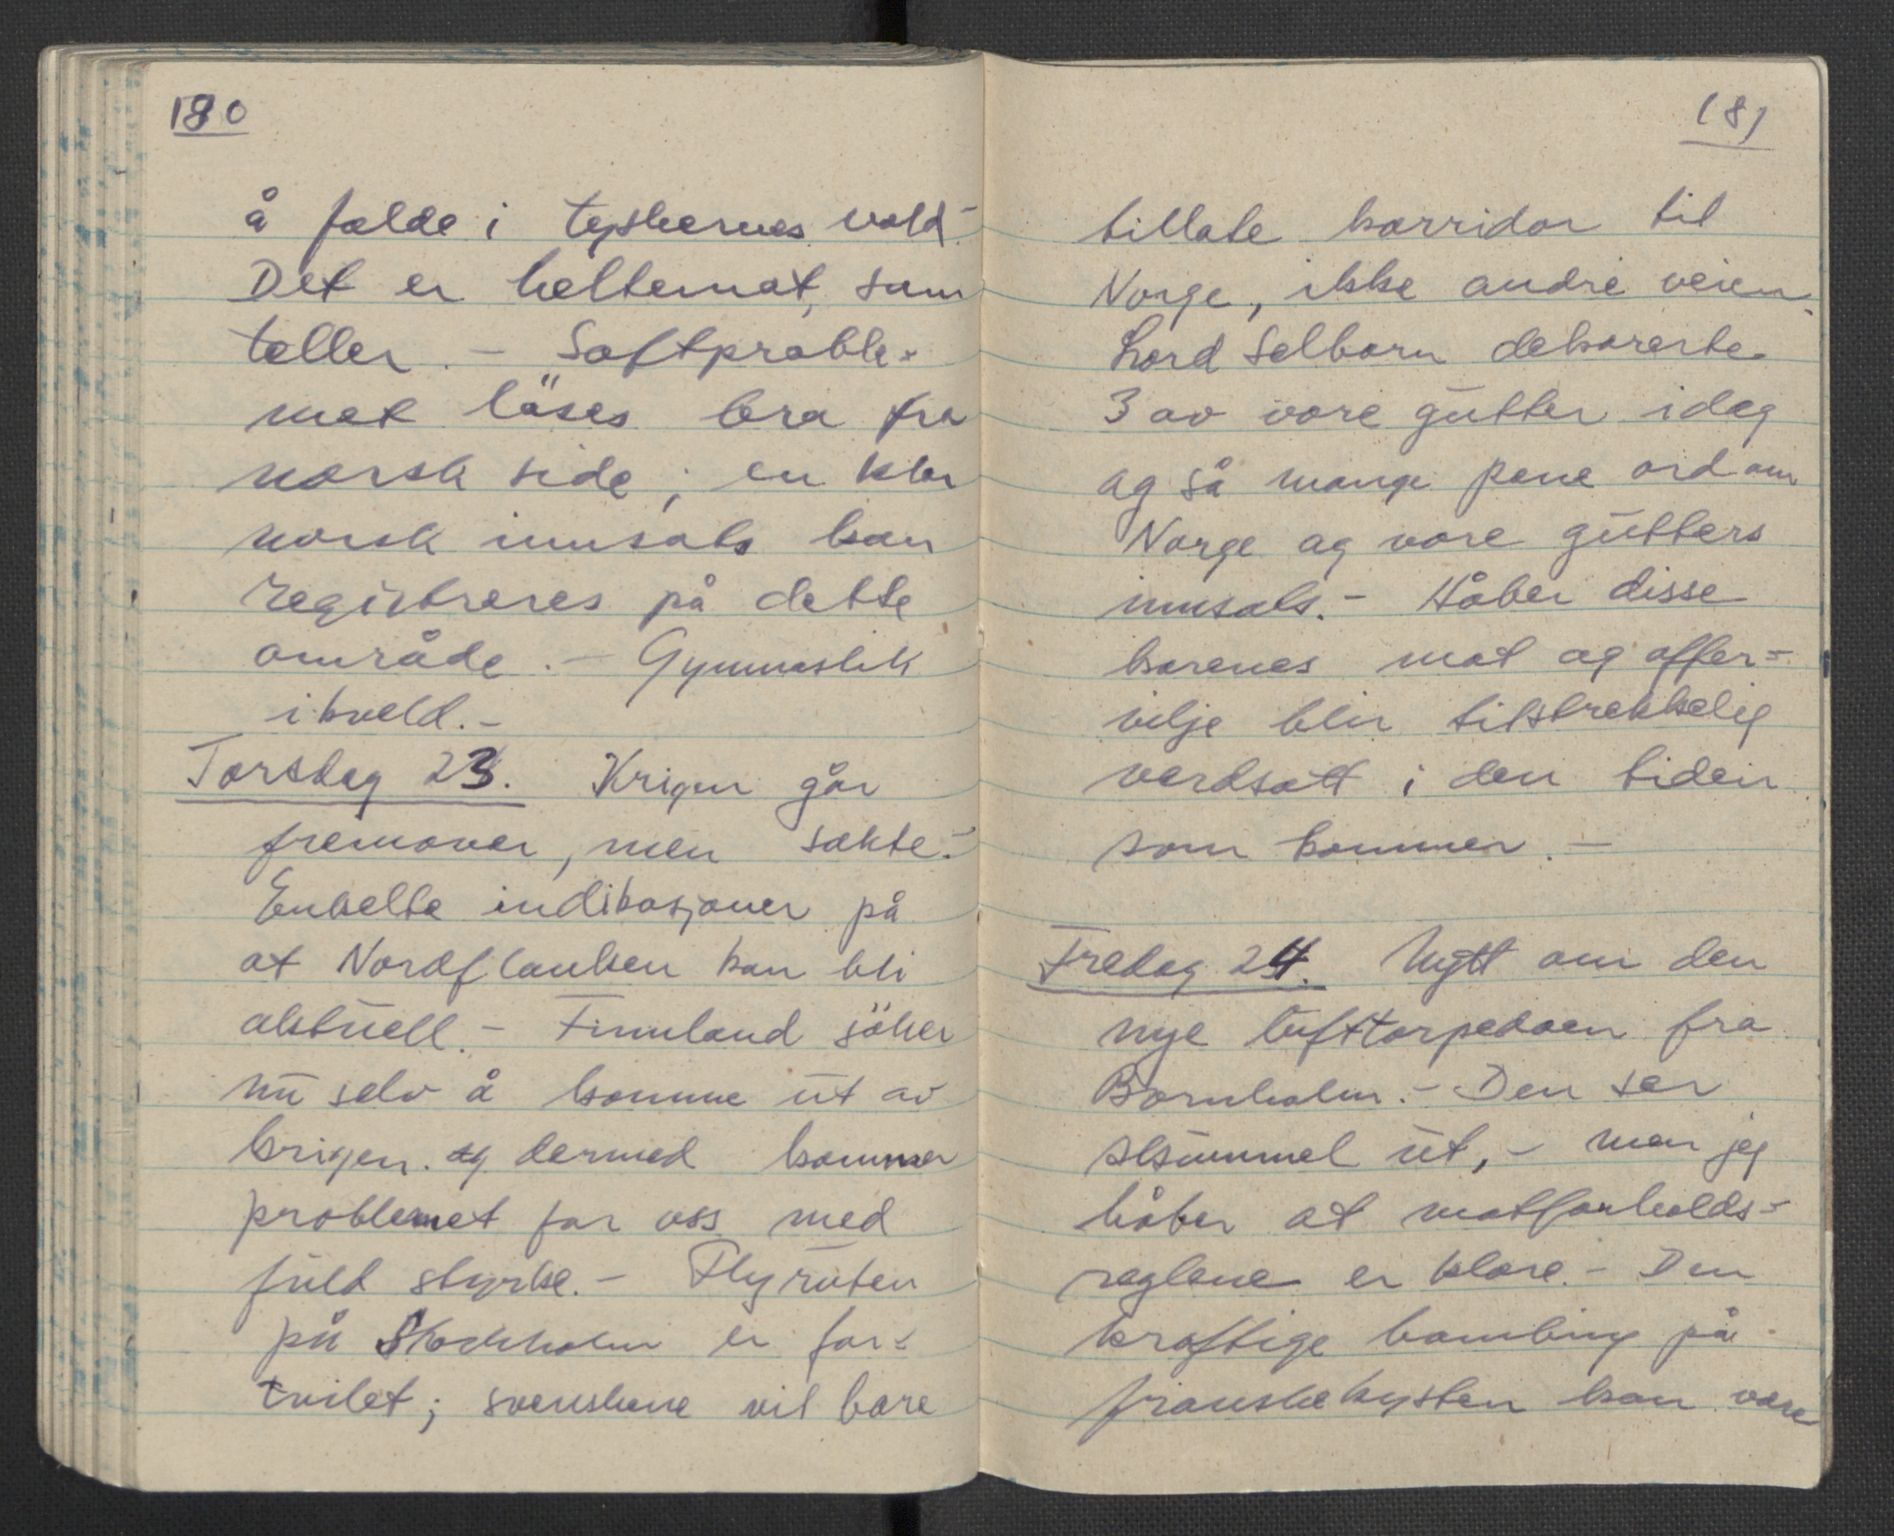 180
å falde i tyskernes vold -
Det er heltemot, som
teller. - Saftproble-
met löses bra fra
norsk side; en klar
norsk innsats kan
registreres på dette
område. - Gymnastik
ikveld. -
Torsdag 23. Krigen går
fremover, men sakte. -
Enkelte indikasjoner på
at Nordflanken kan bli
aktuell. - Finnland söker
nu selv å komme ut av
krigen. og dermed kommer
problemet for oss med
fuld styrke. - Flyruten
på Stockholm er for-
tvilet; svenskene vil bare
181
tillate korridor til
Norge, ikke andre veien.
Lord Selborn dekorerte
3 av vore gutter idag
og så mange pene ord om
Norge og vore gutters
innsats. - Håber disse
karenes mot og offer-
vilje blir tilstrekkelig
verdsatt i den tiden
som kommer. -
Fredag 24. Nytt om den
nye lufttorpedoen fra
Bornholm. - Den ser
skummel ut, - men jeg
håber at motforholds-
reglene er klare. - Den
kraftige bombing på
franskekysten kan være